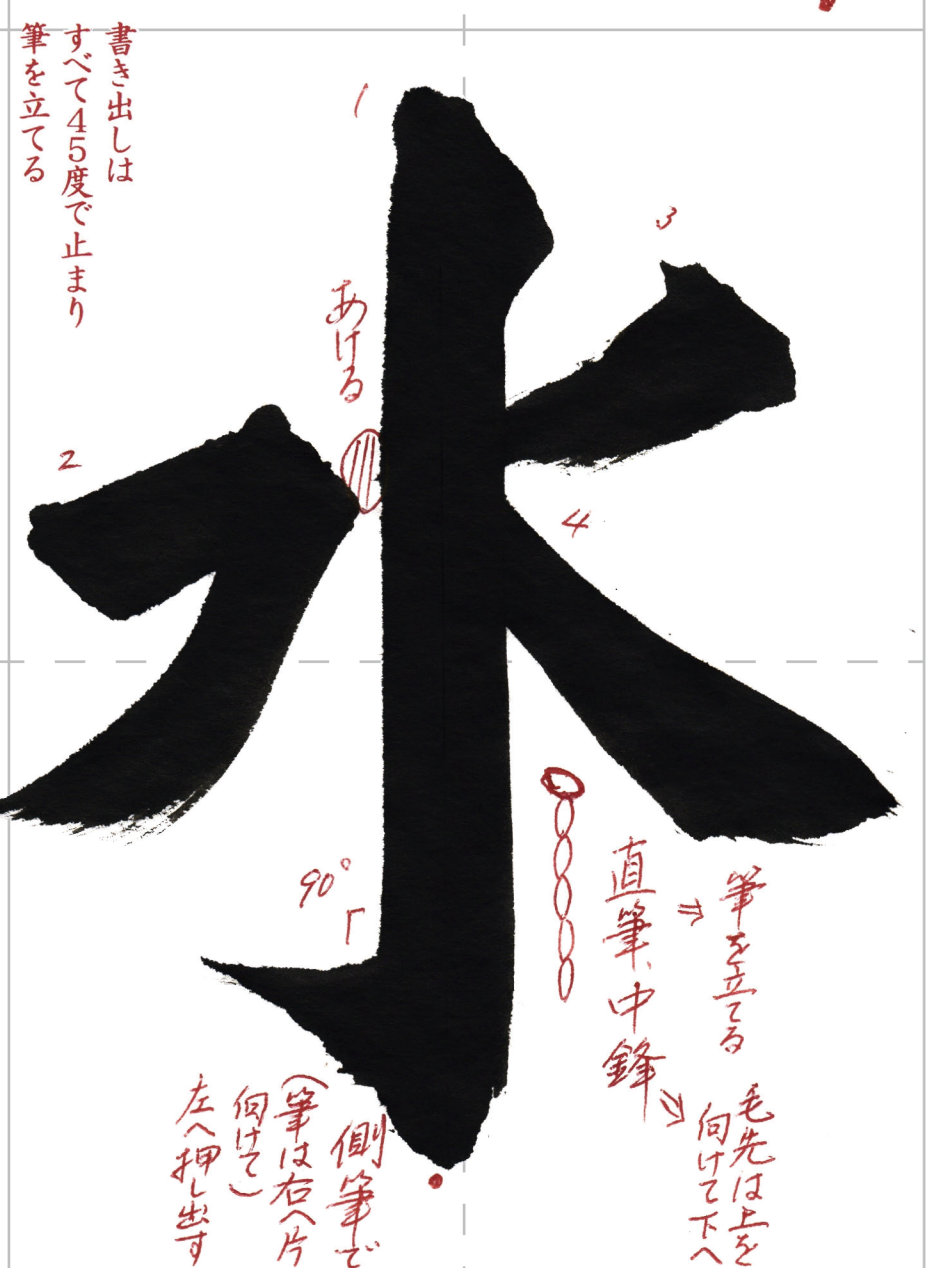 書き出しは
すべて45度で止まり
筆を立てる
水
1
2
3
4
あける
90°
直筆、中鋒
⇒筆を立てる
⇒毛先は上を
向けて下へ
側筆で
(筆は右へ片
向けて)
左へ押し出す